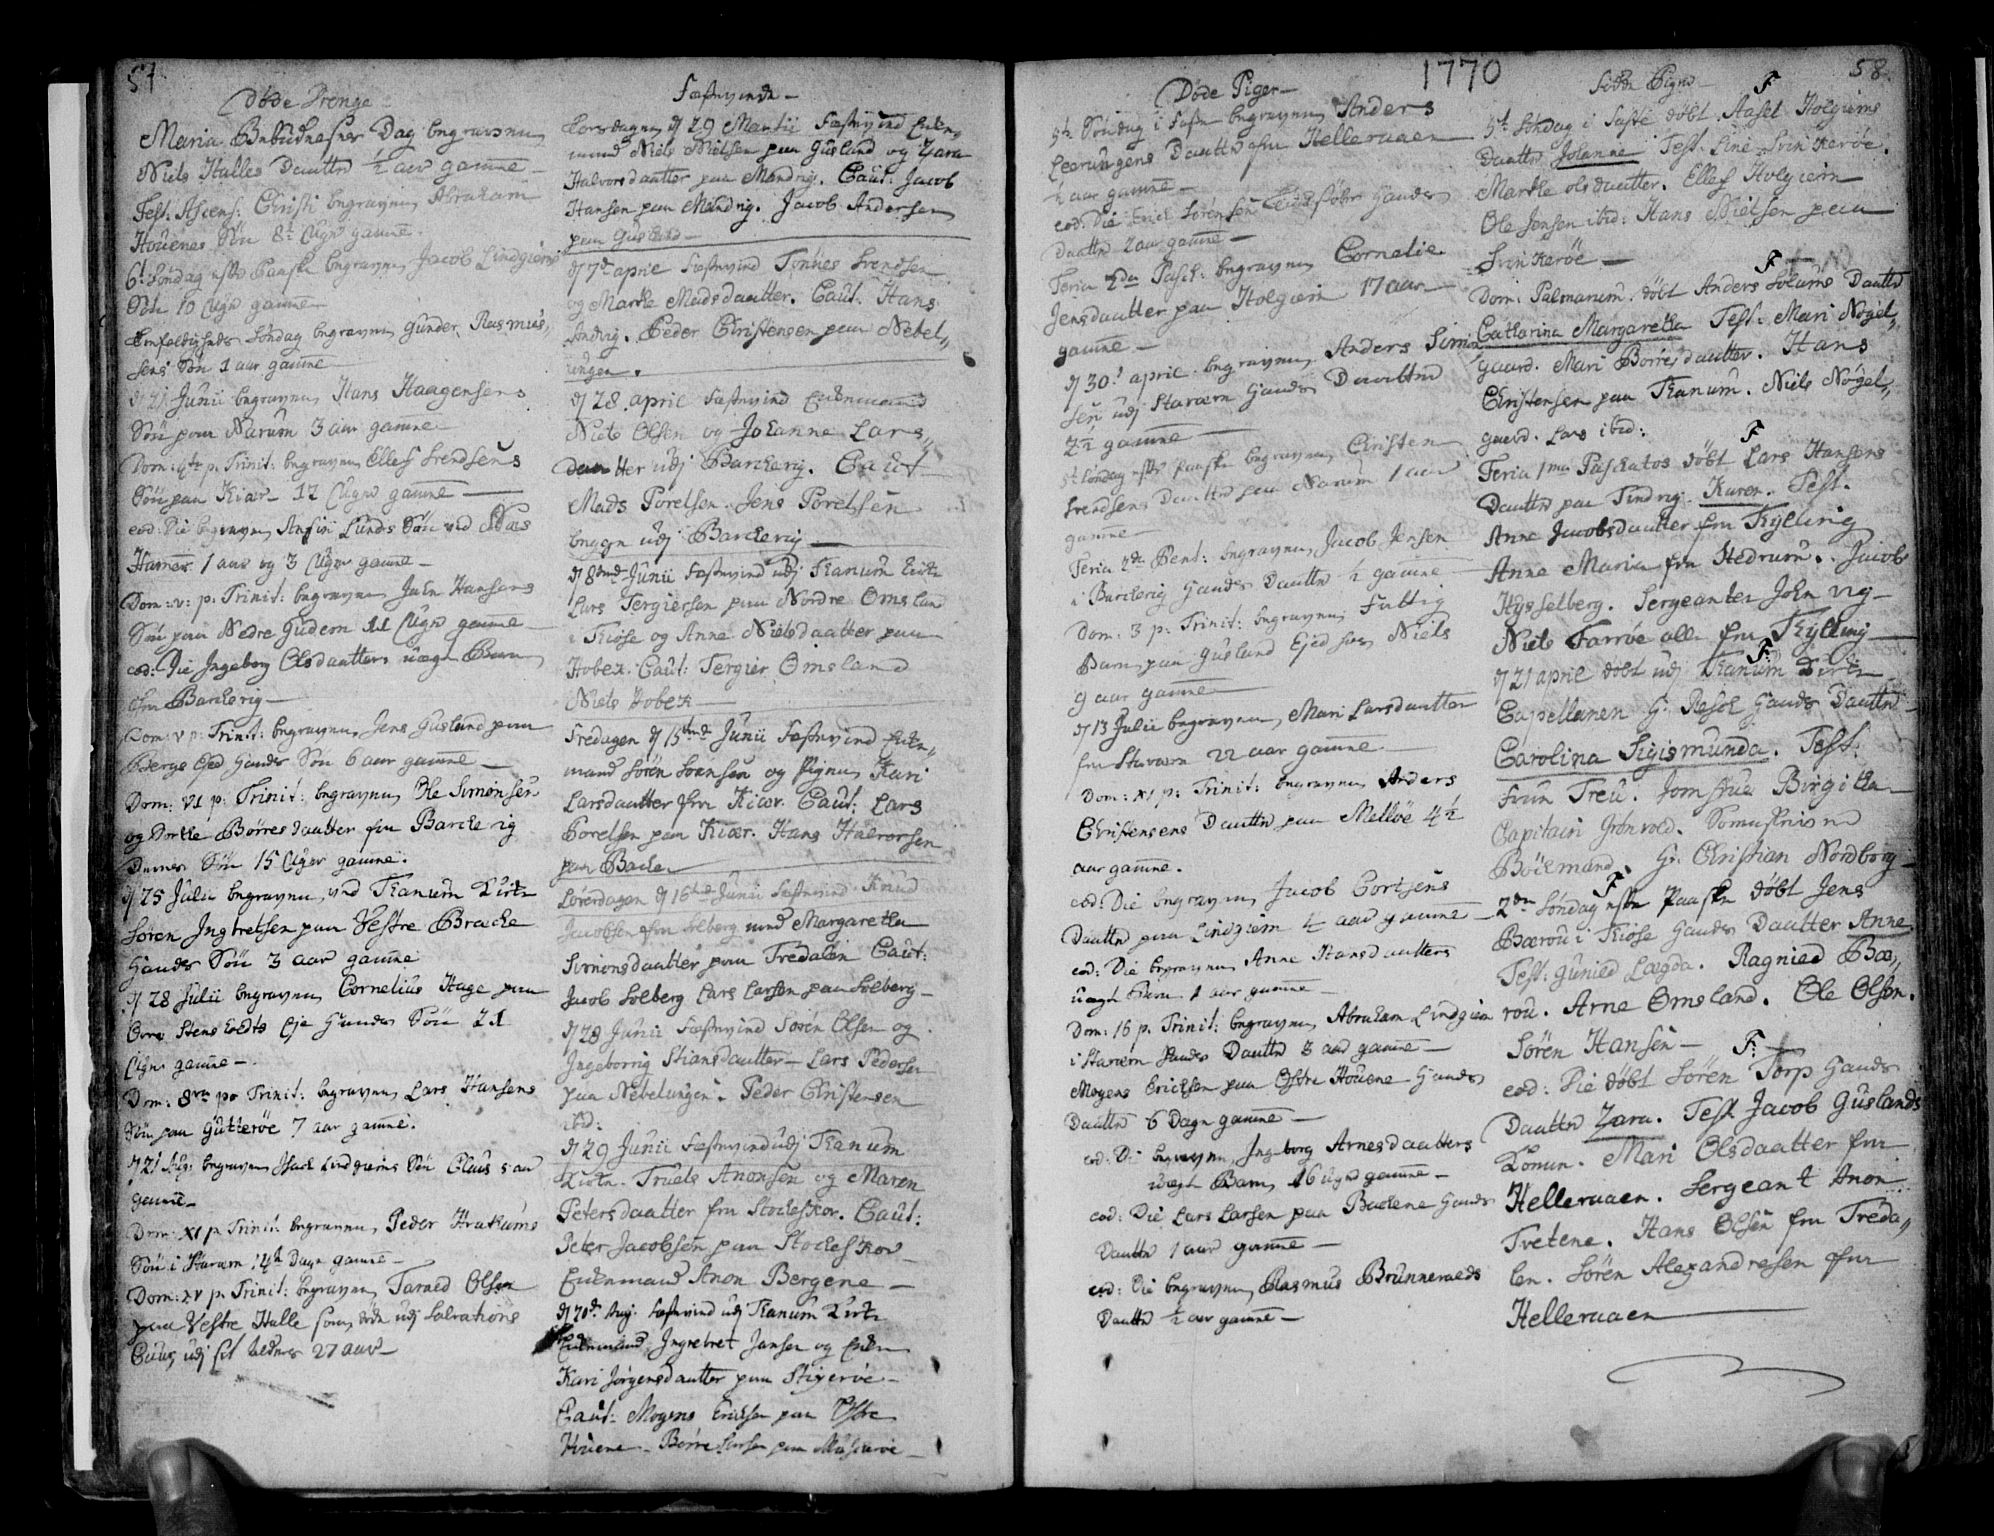 57
Døde Drenge
Maria Bebudelses Dag begraven
Niels Halles Daatter ½ aar gamel
Fest: Ascens: Christi begraven Abraham
Houenes Søn 8t Uger gamel
6t Søndag efter Paaske begraven Jacob Lindgiems
Søn 10 Uger gamel
Trefoldigheds Søndag begraven Gunder Rasmus„
sens Søn 1 aar gamel
d 21 Junii begraven Hans Haagensens
Søn paa Narum 3 aar gamel
Dom: 4te p: Trinit: begraven Ellef Svendsens
Søn paa Kiær 12 Uger gamel
eod: Die begraven Lunds Søn ved
Hamer 1 aar og 3 Uger gamel
Dom: v: p: Trinit: begraven Hansens
Søn paa Nedre Gudem 11 Uger gamel
eod: Die Ingeborg Olsdaatters uægte Barn
fra Barckevig
Dom: v p: Trinit: begraven Jens Guslund paa
Bergs Ejed Hands Søn 6 aar gamel
Dom: v1 p: Trinit: begraven Ole Simonsen
og Dorthe Børresdaatter fra Barckevig
Deres Søn 15 Uger gamel.
d 25 Julii begraven ved Tanum Kirke
Søren Ingbretsen paa Vestre Bracke
Hands Søn 3 aar gamel
d 28 Julii begraven Cornelius Hage paa
Øvre Stens Hands Søn 21
Uger gamel
Dom: 8va p: Trinit: begraven Lars Hansens
Søn paa Gutterøe 7 aar gamel.
d 21 Aug: begraven Isach Lindgiems Søn Claus 5 aar
gamel
Dom: x1 p Trinit begraven, Peder
Søn i Staværn 14 Dage gamel
Dom: xv p: Trinit: begraven, Tarald Olsen
paa Vestre Halle som døde udj Salvations
udj sit Alders 27 aar
Fæstevinde
Torsdagen d 29 Martii Fæstevind Enke„
mand Niels Nielsen paa Guslund og Zara
Halvorsdaatter paa Mandvig. Caut: Jacob
Hansen paa Mandvig. Jacob Andersen
paa Guslund
d 7de april Fæstevind Tønnes Svendsen
og Marthe Madsdaatter. Caut. Hans
Andvig. Peder Christensen paa Nebel„
ungen.
d 28 april Fæstevind Enkemand
Niels Olsen og Johanne Lars„
daatter udj Barckevig. Caut
Mads Porelsen. Jens Porelsen
begge udj Barckevig
d 8tende Junii Fæstevind udj Tanum Kirke
Lars Tergiersen paa Nordre Omsland
i Kiøse og Anne Nielsdaatter paa
Hobek. Caut: Tergier Omsland
Niels Hobek
Fredagen d 15tende Junii Fæstevind Enke„
mand Søren Sørensen og Pigen Kari
Larsdaatter fra Kiær. Caut: Lars
Porelsen paa Kiær. Hans Halvorsen
paa Backen
Løverdagen d 16tende Junii Fæstevind Knud
Jacobsen fra Solberg med Margaretha
Simonsdaatter paa Tredalen Caut:
Jacob Solberg Lars Larsen paa Solberg
d 28 Junii Fæstevind Søren Olsen og
Ingeborrig Stiansdaatter Lars Pedersen
paa Nebelungen. Peder Christensen
ibd:
d 29 Junii Fæstevind udj Tanum
Kirke. Truels Anonsen og Maren
Petersdaatter fra Stockeskov. Caut:
Peter Jacobsen paa Stockeskov
Enkemand Anon Bergene
d 20de Aug: Fæstevind udj Tanum Kirke
Enkemand Ingebret Jansen og Enke
Kari Jørgensdaatter paa Stigerøe
Caut: Mogens Erichsen paa Østre
Houene Børre Larsen paa
1770
Døde Piger
5te Søndag i Faste begraven Anders
Leerungens Daatter fra Helleraaen
½ aar gamel
eod: Die Erich Sørensen Hands
Daatter 2 aar gamel
Feria 2da Pasch: begraven Cornelie
Jensdaatter paa Holgiem 17 aar
gamel
d 30t april begraven Anders Simon„
sen udj Staværn Hands Daatter
2½ gamel
5t Søndag efter Paaske begraven Christen
Svendsens Daatter paa Narum 1 aar
gamel
Feria 2da Pent: begraven Jacob Jensen
i Barckevig Hands Daatter ½ gamel
Dom: 3 p: Trinit: begraven Fattig
Barn paa Guslund Ejed Niels
9 aar gamel
d 13 Julii begraven Mari Larsdaatter
fra Staværn 22 aar gamel
Dom: x1 p: Trinit: begraven Anders
Christensens Daatter paa Melløe 4½
aar gamel.
eod: Die begraven Jacob Cortsens
Daatter paa Lindgiem ½ aar gamel
eod: Die begraven Anne Hansdaatters
uægte Barn 1 aar gamel
Dom: 16 p. Trinit: begraven Abraham Lindgiem
i Staværn Hands Daatter 3 aar gamel
Mogens Erichsen paa Østre Houene Hands
Daatter 6 Dage gamel
eod: Die begraven Ingeborg Arnesdaatters
uægte Barn 16 Uger gamel
eod: Die Lars Larsen paa Backene Hands
Daatter 1 aar gamel
eod: Die begraven Rasmus Brunnevalds
Daatter ½ aar gamel
58
Fødde Piger
F
5te Søndag i Faste døbt Axsel Holgiems
Daatter Johanne Test. Line Svinkerøe.
Marthe olsdaatter. Ellef Holgiem
Ole Jensen ibid: Hans Nielsen paa
Svinkerøe
F
Dom: Palmarum. døbt Anders Solums Daatter
Catharina Margaretha Test: Mari Nøgel„
gaard. Mari Børresdaatter. Hans
Christensen paa Tanum. Niels Nøgel„
gaard. Lars ibid:
F
Feria 1ma Paschatos døbt Lars Hansens
Daatter paa Tindvig Karen. Test.
Anne Jacobsdaatter fra Kylling
Anne Maria fra Hedrum. Jacob
Hysselberg. Sergeanten John vig
Niels Farrøe alle fra Kylling
F:
d 21 april døbt udj Tanum Kirke
Capellanen Hr. Resch Hands Daatter
Carolina Sigismunda. Test:
Frue Treu. Jomfrue Birgitha
Capitain Grønvold.
Bøckmand. Hr: Christian Nordborg
F
2den Søndag efter Paaske døbt Jens
Bærou i Kiøse Hands Daatter Anne
Test: Gunild Lægda. Ragnild Bæ„
rou. Arne Omsland. Ole Olsen.
Søren Hansen
F:
eod: Die døbt Søren Torp Hands
Daatter Zara. Test Jacob Guslands
Konen. Mari Olsdaatter fra
Helleraaen. Sergeant Anon
Tvetene. Hans Olsen fra Treda„
len. Søren Alexandresen fra
Helleraaen